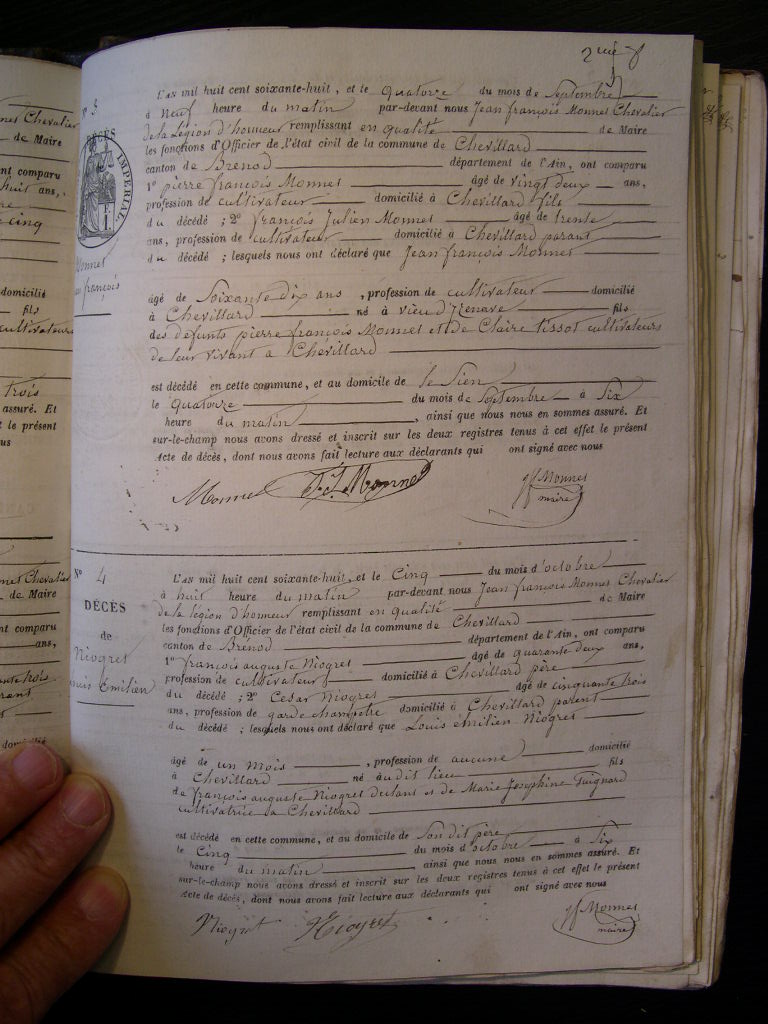 2me
L'an mil huit cent soixante-huit, et le quatorze du mois de Septembre
à neuf heure du matin par-devant nous Jean françois Monnet Chevalier
de la Légion d'honneur remplissant en qualité de Maire
les fonctions d'Officier de l'état civil de la commune de Chevillard
canton de Brenod département de l'Ain, ont comparu
1º pierre françois Monnet âgé de vingt deux ans,
profession de cultivateur domicilié à Chevillard fils
du décédé ; 2º françois Julien Monnet âgé de trente
ans, profession de cultivateur domicilié à Chevillard parent
du décédé ; lesquels nous ont déclaré que Jean françois Monnet
âgé de Soixante dix ans, profession de cultivateur domicilié
à Chevillard né à vieu d'Izenave fils
des défunts pierre françois Monnet et de Claire tissot cultivateurs
de leur vivant à Chevillard
est décédé en cette commune, et au domicile de le Sien
le quatorze du mois de Septembre à Six
heure du matin, ainsi que nous nous en sommes assuré. Et
sur-le-champ nous avons dressé et inscrit sur les deux registres tenus à cet effet le présent
Acte de décès, dont nous avons fait lecture aux déclarants qui ont signé avec nous
Monnet F. J. Monnet Jf Monnet
maire
Nº 3
DÉCÈS
IMPERIAL
Monnet
françois
Nº 4
DÉCÈS
de
Niogret
Louis émilien
L'an mil huit cent soixante-huit, et le Cinq du mois d'octobre
à huit heure du matin par-devant nous Jean françois Monnet Chevalier
de la légion d'honneur remplissant en qualité de Maire
les fonctions d'Officier de l'état civil de la commune de Chevillard
canton de Brénod département de l'Ain, ont comparu
1º françois auguste Niogret âgé de quarante deux ans,
profession de cultivateur domicilié à Chevillard père
du décédé ; 2º Cesar Niogret âgé de cinquante trois
ans, profession de garde champêtre domicilié à Chevillard parent
du décédé ; lesquels nous ont déclaré que Louis émilien Niogret
âgé de un mois, profession de aucune domicilié
à Chevillard né audit lieu fils
de françois auguste Niogret declarant et de Marie Josephine Guignard
cultivatrice à Chevillard
est décédé en cette commune, et au domicile de Son dit père
le Cinq du mois d'octobre à Six
heure du matin ainsi que nous nous en sommes assuré. Et
sur-le-champ nous avons dressé et inscrit sur les deux registres tenus à cet effet le présent
Acte de décès, dont nous avons fait lecture aux déclarants qui ont signé avec nous
Niogret Niogret Jf Monnet
maire